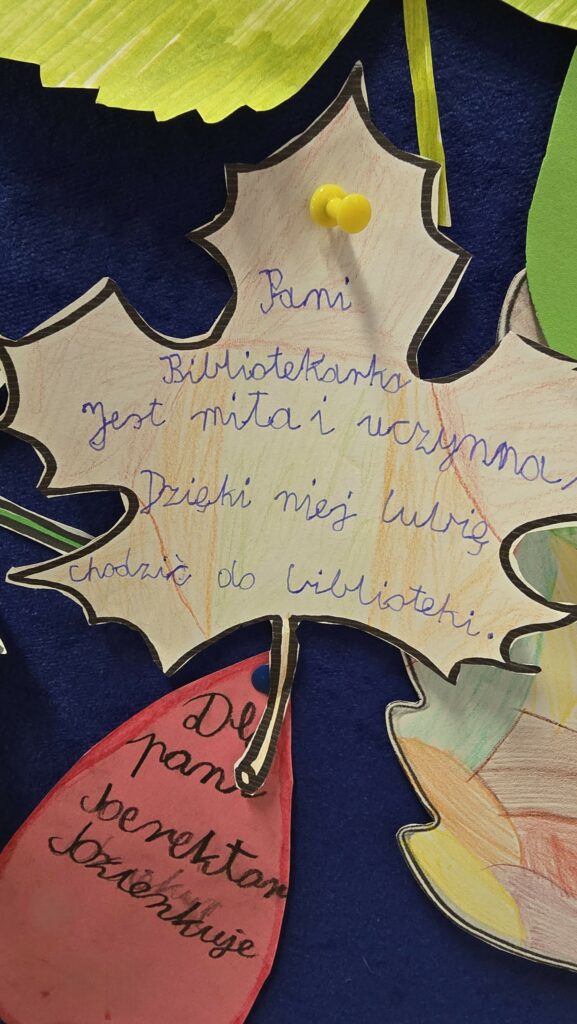 Pani
Bibliotekarka
Jest miła i uczynna,
Dzięki niej lubię
chodzić do biblioteki.
pani
Dzienkuje